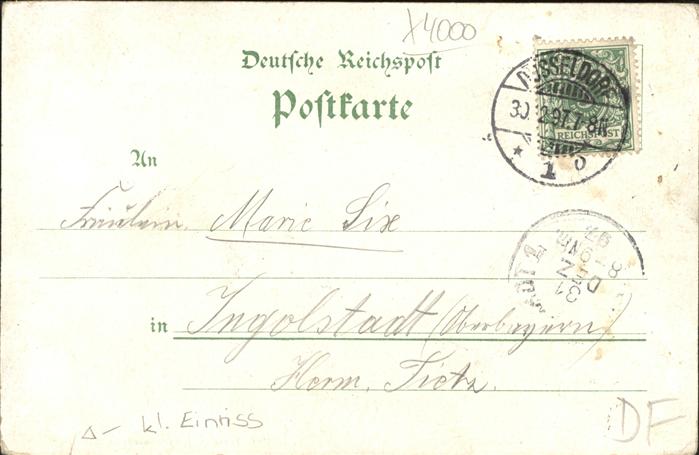 X4000
Deutsche Reichspost
Postkarte
DÜSSELDORF
30.12.97.7-8N.
REICHSPOST
★ 1 o
An
Fräulein Marie Six
31
DEZ
97
in Ingolstadt (Oberbayern)
Herm. Tietz.
kl. Einriss
DF